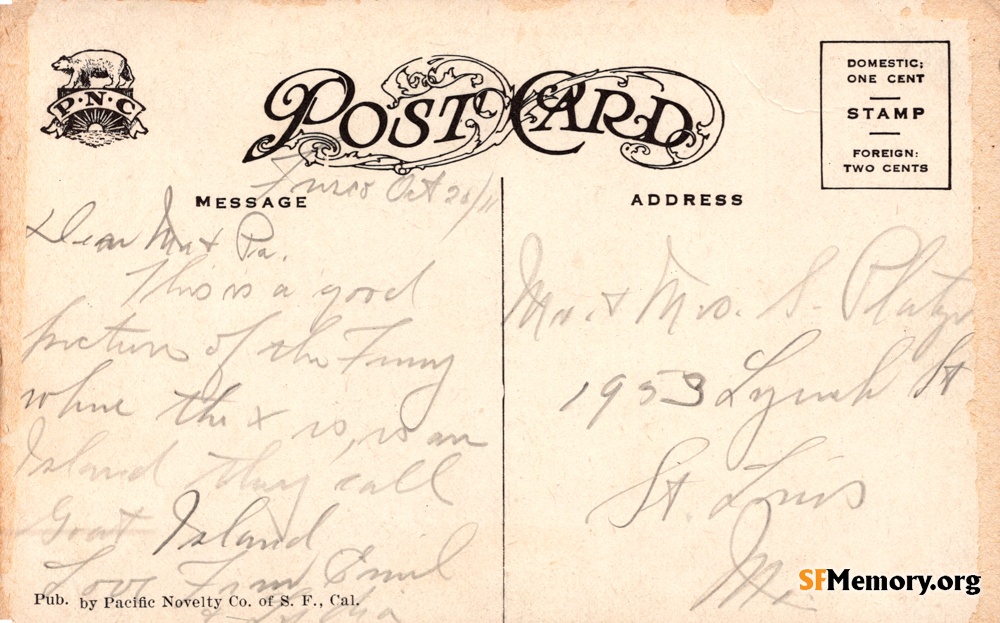 P·N·C
POST CARD
DOMESTIC;
ONE CENT
STAMP
FOREIGN:
TWO CENTS
MESSAGE
ADDRESS
Frisco Oct 26/11
Dear Ma & Pa.
This is a good
picture of the Ferry
where the x is, is an
Island they call
Goat Island
Love From Emil
Mr. & Mrs. S. Platz
1953 Lynch St
St. Louis
Mo.
Pub. by Pacific Novelty Co. of S. F., Cal.
SFMemory.org